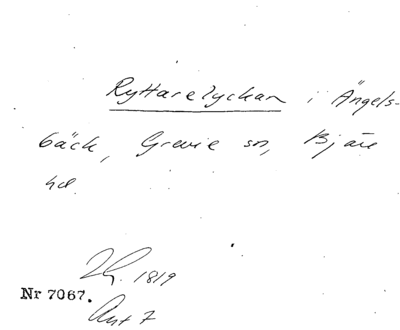 Ryttarelyckan i Ängels-
bäck, Grevie sn, Bjäre
hd
1819
Nr 7067.
Akt 7